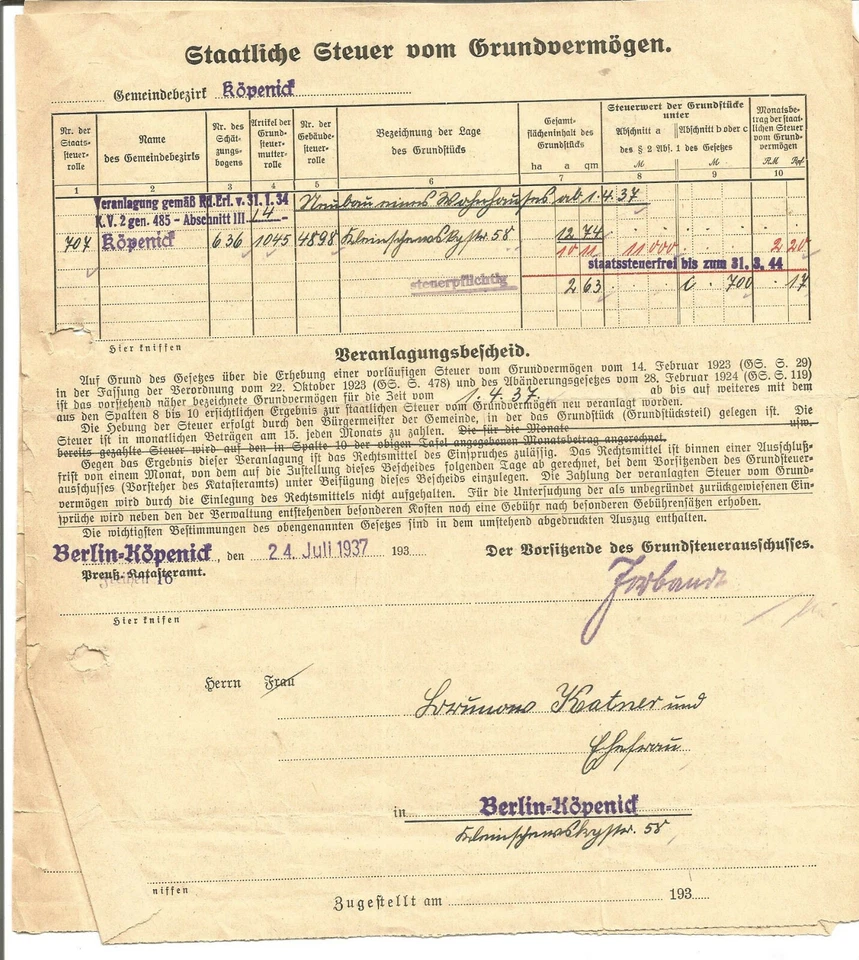 Staatliche Steuer vom Grundvermögen.
Gemeindebezirk Köpenick
Nr. der Staats-steuer-rolle
Name des Gemeindebezirks
Nr. des Schät-zungs-bogens
Artikel der Grund-steuer-mutter-rolle
Nr. der Gebäude-steuer-rolle
Bezeichnung der Lage des Grundstücks
Gesamt-flächeninhalt des Grundstücks
ha a qm
Steuerwert der Grundstücke unter
Abschnitt a Abschnitt b oder c
des § 2 Abs. 1 des Gesetzes
M M
Monatsbe-trag der staat-lichen Steuer vom Grund-vermögen
RM Rpf
1 2 3 4 5 6 7 8 9 10
Veranlagung gemäß Rd.Erl. v. 31.1.34 Neubau eines Wohnhauses ab 1.4.37
K.V. 2 gen. 485 - Abschnitt III 14 -
707 Köpenick 636 1045 4898 58 12 74
10 11 11 000 2 20
staatssteuerfrei bis zum 31.3.44
steuerpflichtig 2 63 c 700 17
Hier kniffen
Veranlagungsbescheid.
Auf Grund des Gesetzes über die Erhebung einer vorläufigen Steuer vom Grundvermögen vom 14. Februar 1923 (GS. S. 29)
in der Fassung der Verordnung vom 22. Oktober 1923 (GS. S. 478) und des Abänderungsgesetzes vom 28. Februar 1924 (GS. S. 119)
ist das vorstehend näher bezeichnete Grundvermögen für die Zeit vom 1.4.37. ab bis auf weiteres mit dem
aus den Spalten 8 bis 10 ersichtlichen Ergebnis zur staatlichen Steuer vom Grundvermögen neu veranlagt worden.
Die Hebung der Steuer erfolgt durch den Bürgermeister der Gemeinde, in der das Grundstück (Grundstücksteil) gelegen ist. Die
Steuer ist in monatlichen Beträgen am 15. jeden Monats zu zahlen. Die für die Monate usw.
bereits gezahlte Steuer wird auf den in Spalte 10 der obigen Tafel angegebenen Monatsbetrag angerechnet.
Gegen das Ergebnis dieser Veranlagung ist das Rechtsmittel des Einspruches zulässig. Das Rechtsmittel ist binnen einer Ausschluß-
frist von einem Monat, von dem auf die Zustellung dieses Bescheides folgenden Tage ab gerechnet, bei dem Vorsitzenden des Grundsteuer-
ausschusses (Vorsteher des Katasteramts) unter Beifügung dieses Bescheids einzulegen. Die Zahlung der veranlagten Steuer vom Grund-
vermögen wird durch die Einlegung des Rechtsmittels nicht aufgehalten. Für die Untersuchung der als unbegründet zurückgewiesenen Ein-
sprüche wird neben den der Verwaltung entstehenden besonderen Kosten noch eine Gebühr nach besonderen Gebührensätzen erhoben.
Die wichtigsten Bestimmungen des obengenannten Gesetzes sind in dem umstehend abgedruckten Auszug enthalten.
Berlin-Köpenick, den 24. Juli 1937 193
Der Vorsitzende des Grundsteuerausschusses.
Preuß. Katasteramt.
16
Hier knifen
Herrn Frau
Katner und
Ehefrau
in Berlin-Köpenick
58
niffen
Zugestellt am 193